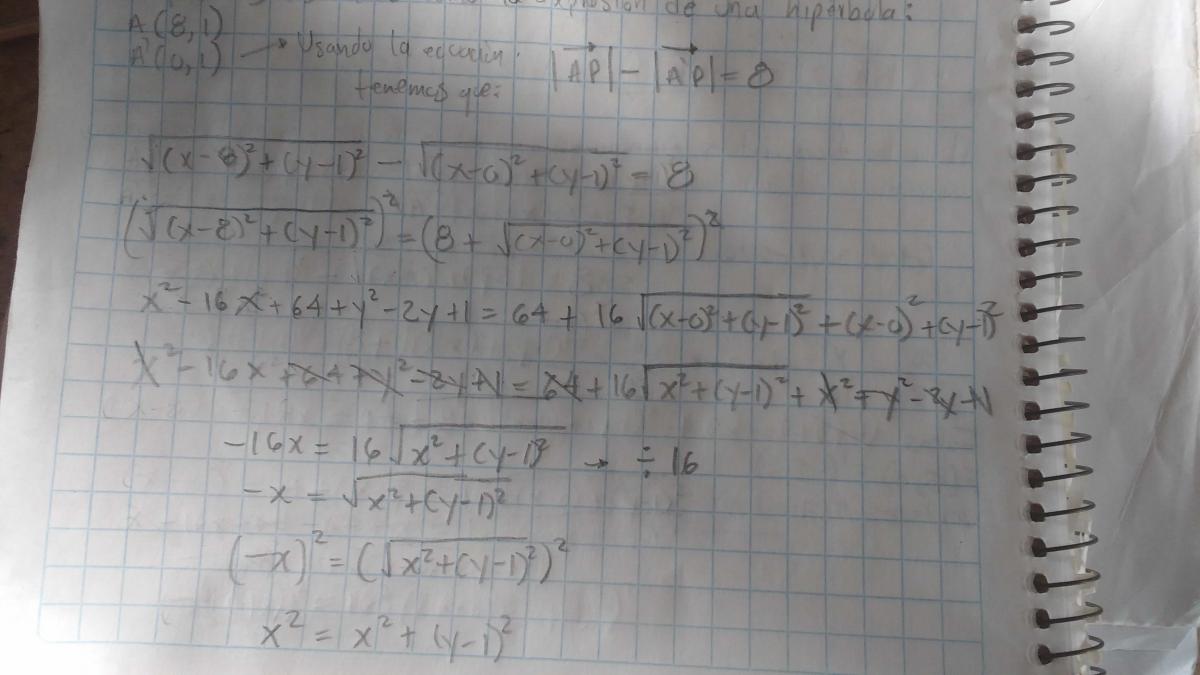 la explosión de una hipérbola:
A(8,1)
A'(0,1) → Usando la ecuación.
tenemos que: |AP| - |A'P| = 8
√(x-8)²+(y-1)² - √(x-0)²+(y-1)² = 8
(√(x-8)²+(y-1)²)² = (8 + √(x-0)²+(y-1)²)²
x² - 16x + 64 + y² - 2y + 1 = 64 + 16√(x-0)²+(y-1)² + (x-0)² + (y-1)²
x² - 16x + 64 + y² - 2y + 1 = 64 + 16√x²+(y-1)² + x² + y² - 2y + 1
-16x = 16√x²+(y-1)² → ÷ 16
-x = √x²+(y-1)²
(-x)² = (√x²+(y-1)²)²
x² = x² + (y-1)²